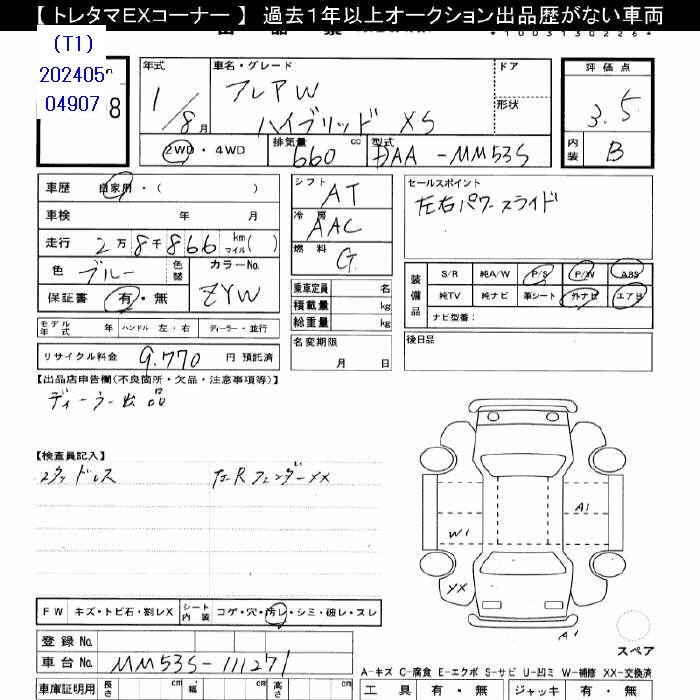 【 トレタマEXコーナー 】 過去1年以上オークション出品歴がない車両
*1003130226*
(T1)
202405
04907
8
年式
車名・グレード
ドア
評価点
1/8月
フレアW
ハイブリッド XS
形状
3.5
2WD・4WD
排気量
660 cc
型式
DAA-MM53S
内装
B
車歴 自家用・( )
車検 年 月
走行 2万8千866 km マイル( )
色 ブルー 色替
カラーNo. ZYW
保証書 有・無
モデル年式 年 ハンドル 左・右 ディーラー・並行
リサイクル料金 9,770 円 預託済
シフト AT
冷房 AAC
燃料 G
乗車定員 名
積載量 kg
総重量 kg
名変期限
月 日
セールスポイント
左右パワースライド
装備品
S/R 純A/W P/S P/W ABS
純TV 純ナビ 革シート 外ナビ エアB
ナビ型番:
後日品
【出品店申告欄(不良箇所・欠品・注意事項等)】
ディーラー出品
【検査員記入】
左Rフェンダー XX
A1
W1
XX
A1
スペア
FW キズ・トビ石・割レX シート内装 コゲ・穴・汚レ・シミ・破レ・スレ
登録No.
車台No. MM53S-111271
車庫証明用 長さ cm 幅 cm 高さ cm
A-キズ C-腐食 E-エクボ S-サビ U-凹ミ W-補修 XX-交換済
工具 有・無 ジャッキ 有・無